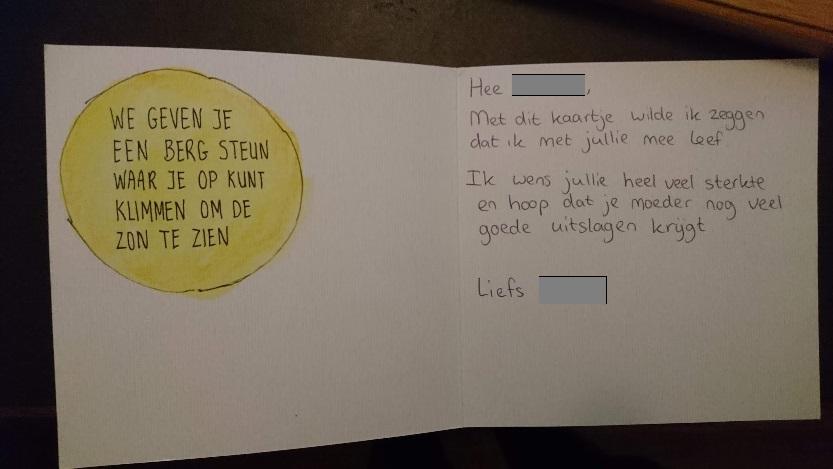 WE GEVEN JE
EEN BERG STEUN
WAAR JE OP KUNT
KLIMMEN OM DE
ZON TE ZIEN
Hee ,
Met dit kaartje wilde ik zeggen
dat ik met jullie mee leef
Ik wens jullie heel veel sterkte
en hoop dat je moeder nog veel
goede uitslagen krijgt
Liefs